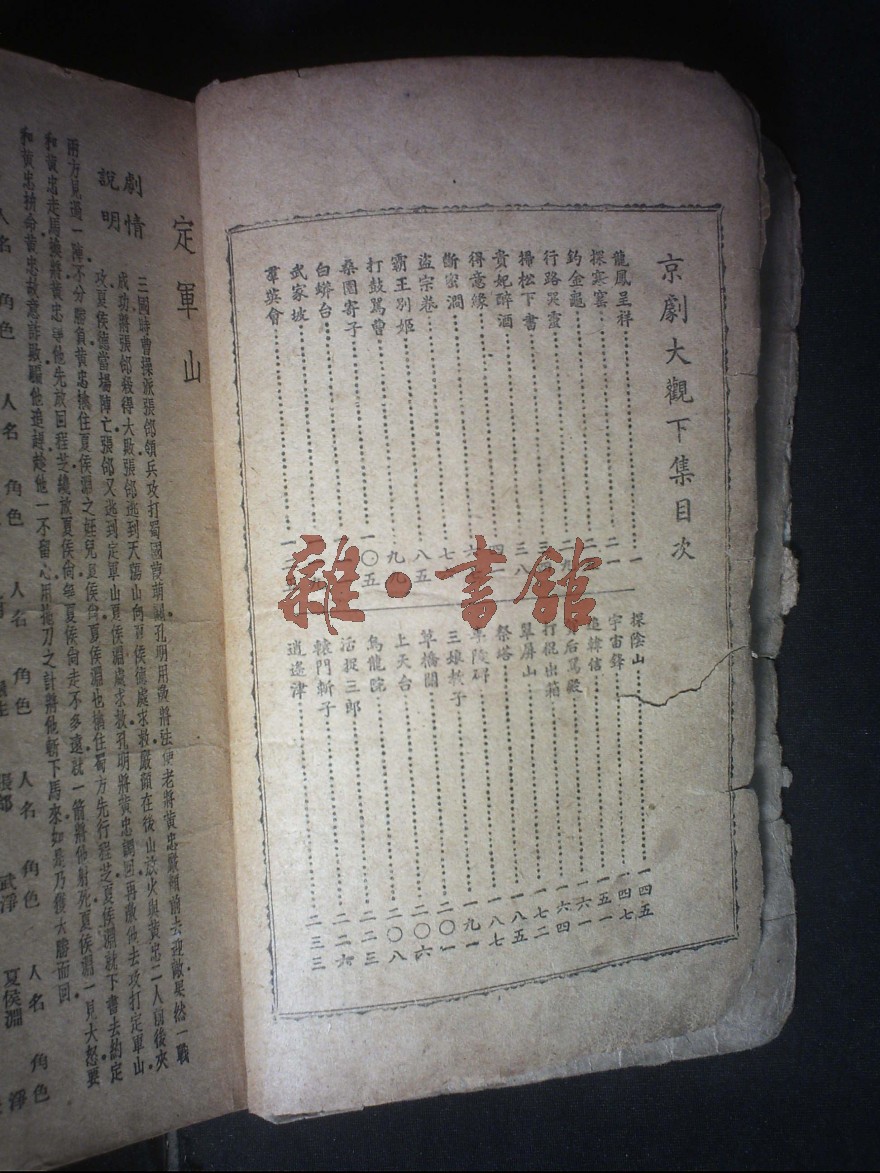 京劇大觀下集目次
龍鳳呈祥 一
探寒窰
釣金龜
行路哭靈
掃松下書 三八
貴妃醉酒 四
得意緣
斷密澗 七
盜宗卷 八五
霸王別姬 九九
打鼓罵曹 一〇五
桑園寄子
白蟒台
武家坡
羣英會
探陰山 一四五
宇宙鋒 一四七
追韓信 一五一
罵殿 一六一
打棍出箱 一六四
翠屏山 一七二
祭塔 一八五
碑 一八七
三娘教子 一九一
草橋關 二〇一
上天台 二〇六
烏龍院 二〇八
活捉三郎 二二三
轅門斬子 二二六
逍遙津 二三三
雜·書館
定軍山
劇情說明
三國時曹操派張郃領兵攻打蜀國葭萌關孔明用激將法使老將黃忠嚴顏前去迎敵果然一戰
成功將張郃殺得大敗張郃逃到天蕩山向夏侯德處求救嚴顏在後山放火與黃忠二人前後夾
攻夏侯德當場陣亡張郃又逃到定軍山夏侯淵處求救孔明將黃忠調回再激他去攻打定軍山
兩方見過一陣不分勝負黃忠擒住夏侯淵之姪兒夏侯尚夏侯淵也擒住蜀方先行程芝夏侯淵就下書去約定
和黃忠走馬換將黃忠等他先放回程芝纔放夏侯尚等夏侯尚走不多遠就一箭將他射死夏侯淵一見大怒要
和黃忠拚命黃忠故意詐敗騙他追趕趁他一不留心用拖刀之計將他斬下馬來如是乃獲大勝而回
人名 角色 人名 角色 人名 角色 人名 角色 人名 角色
張郃 武淨 夏侯淵 淨